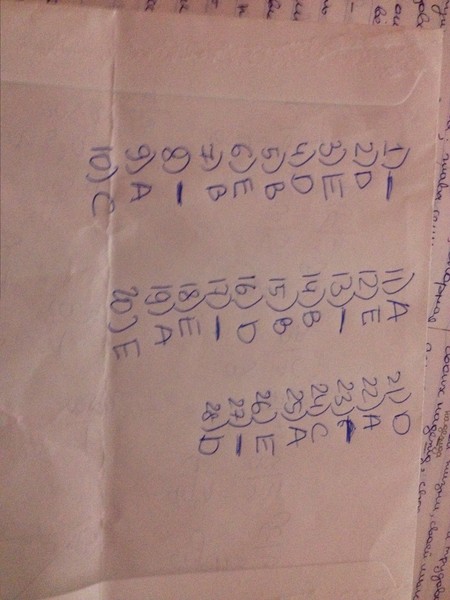 1) —
2) D
3) E
4) D
5) B
6) E
7) B
8) —
9) A
10) C
11) A
12) E
13) —
14) B
15) B
16) D
17) —
18) E
19) A
20) E
21) D
22) A
23) —
24) C
25) A
26) E
27) —
28) D